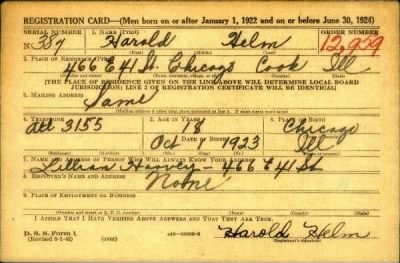 REGISTRATION CARD—(Men born on or after January 1, 1922 and on or before June 30, 1924)
SERIAL NUMBER 1. NAME (Print) ORDER NUMBER
387 Harold Helm 12,959
(First) (Middle) (Last)
2. PLACE OF RESIDENCE
466 E 41 St. Chicago Cook Ill
(Number and street) (Town, township, village, or city) (County) (State)
[THE PLACE OF RESIDENCE GIVEN ON THE LINE ABOVE WILL DETERMINE LOCAL BOARD
JURISDICTION; LINE 2 OF REGISTRATION CERTIFICATE WILL BE IDENTICAL]
3. MAILING ADDRESS
Same
[Mailing address if other than place indicated on line 2. If same insert word same]
4. TELEPHONE 5. AGE IN YEARS 6. PLACE OF BIRTH
3155 18 Chicago
DATE OF BIRTH
Oct 1 1923 Ill
(Exchange) (Number) (Mo.) (Day) (Yr.) (State or country)
7. NAME AND ADDRESS OF PERSON WHO WILL ALWAYS KNOW YOUR ADDRESS
Lillian Harvey - 466 E 41 St
8. EMPLOYER'S NAME AND ADDRESS
None
9. PLACE OF EMPLOYMENT OR BUSINESS
(Number and street or R. F. D. number) (Town) (County) (State)
I AFFIRM THAT I HAVE VERIFIED ABOVE ANSWERS AND THAT THEY ARE TRUE.
D. S. S. Form 1
(Revised 6-1-42) (over) Harold Helm
(Registrant's signature)